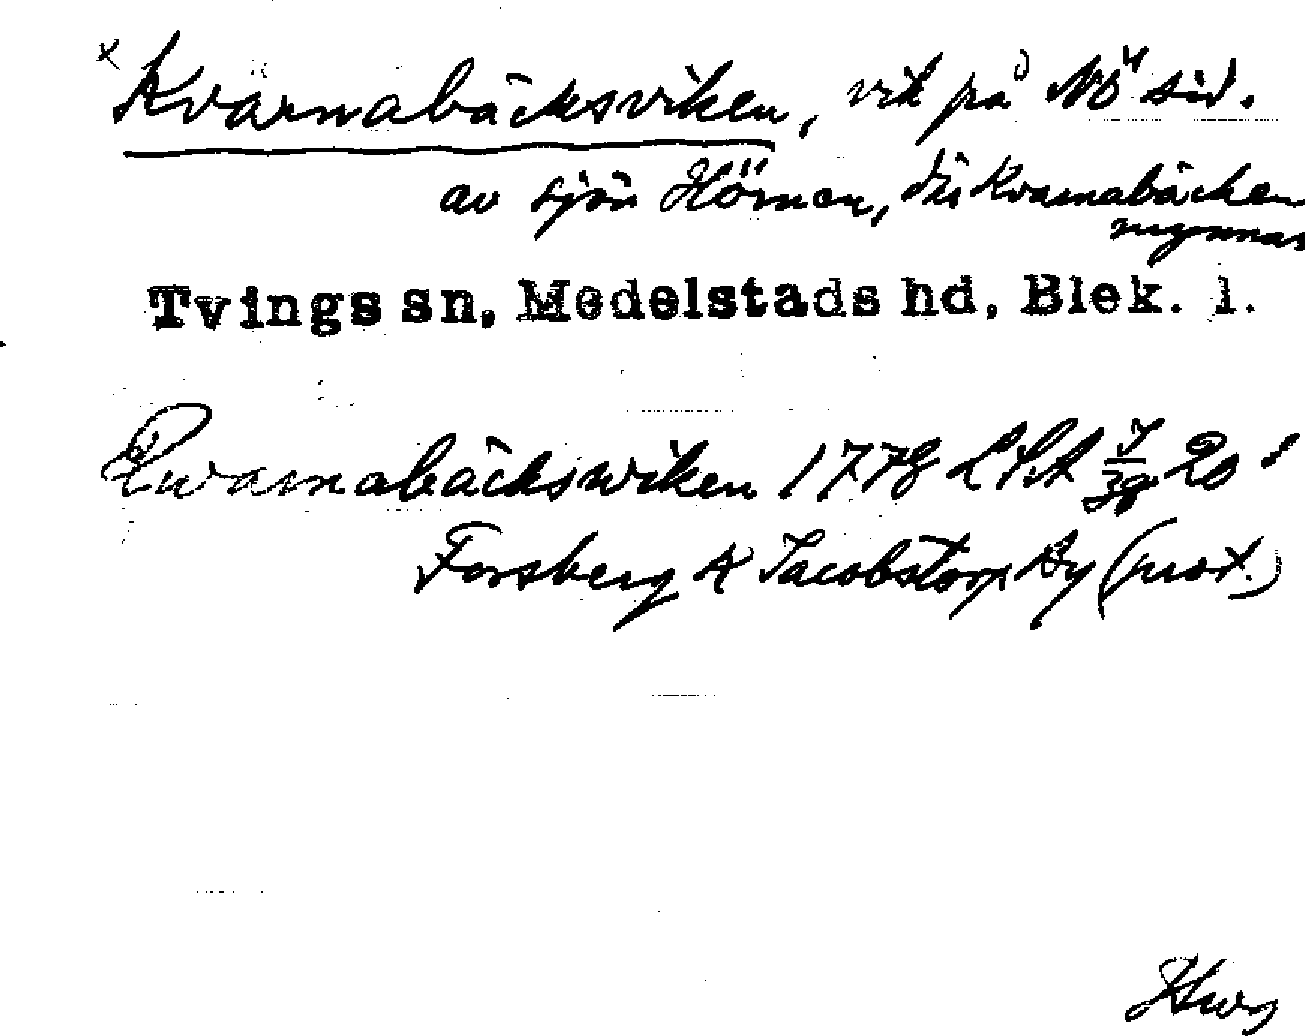 x Kvarnabäcksviken, vik på NÖ sid.
av sjön Hörnen, där Kvarnabäcken
mynnar
Tvings sn, Medelstads hd, Blek. l.
Qwarnabäckswiken 1778 LStA 20
Forsberg & Jacobstorp By (prot.)